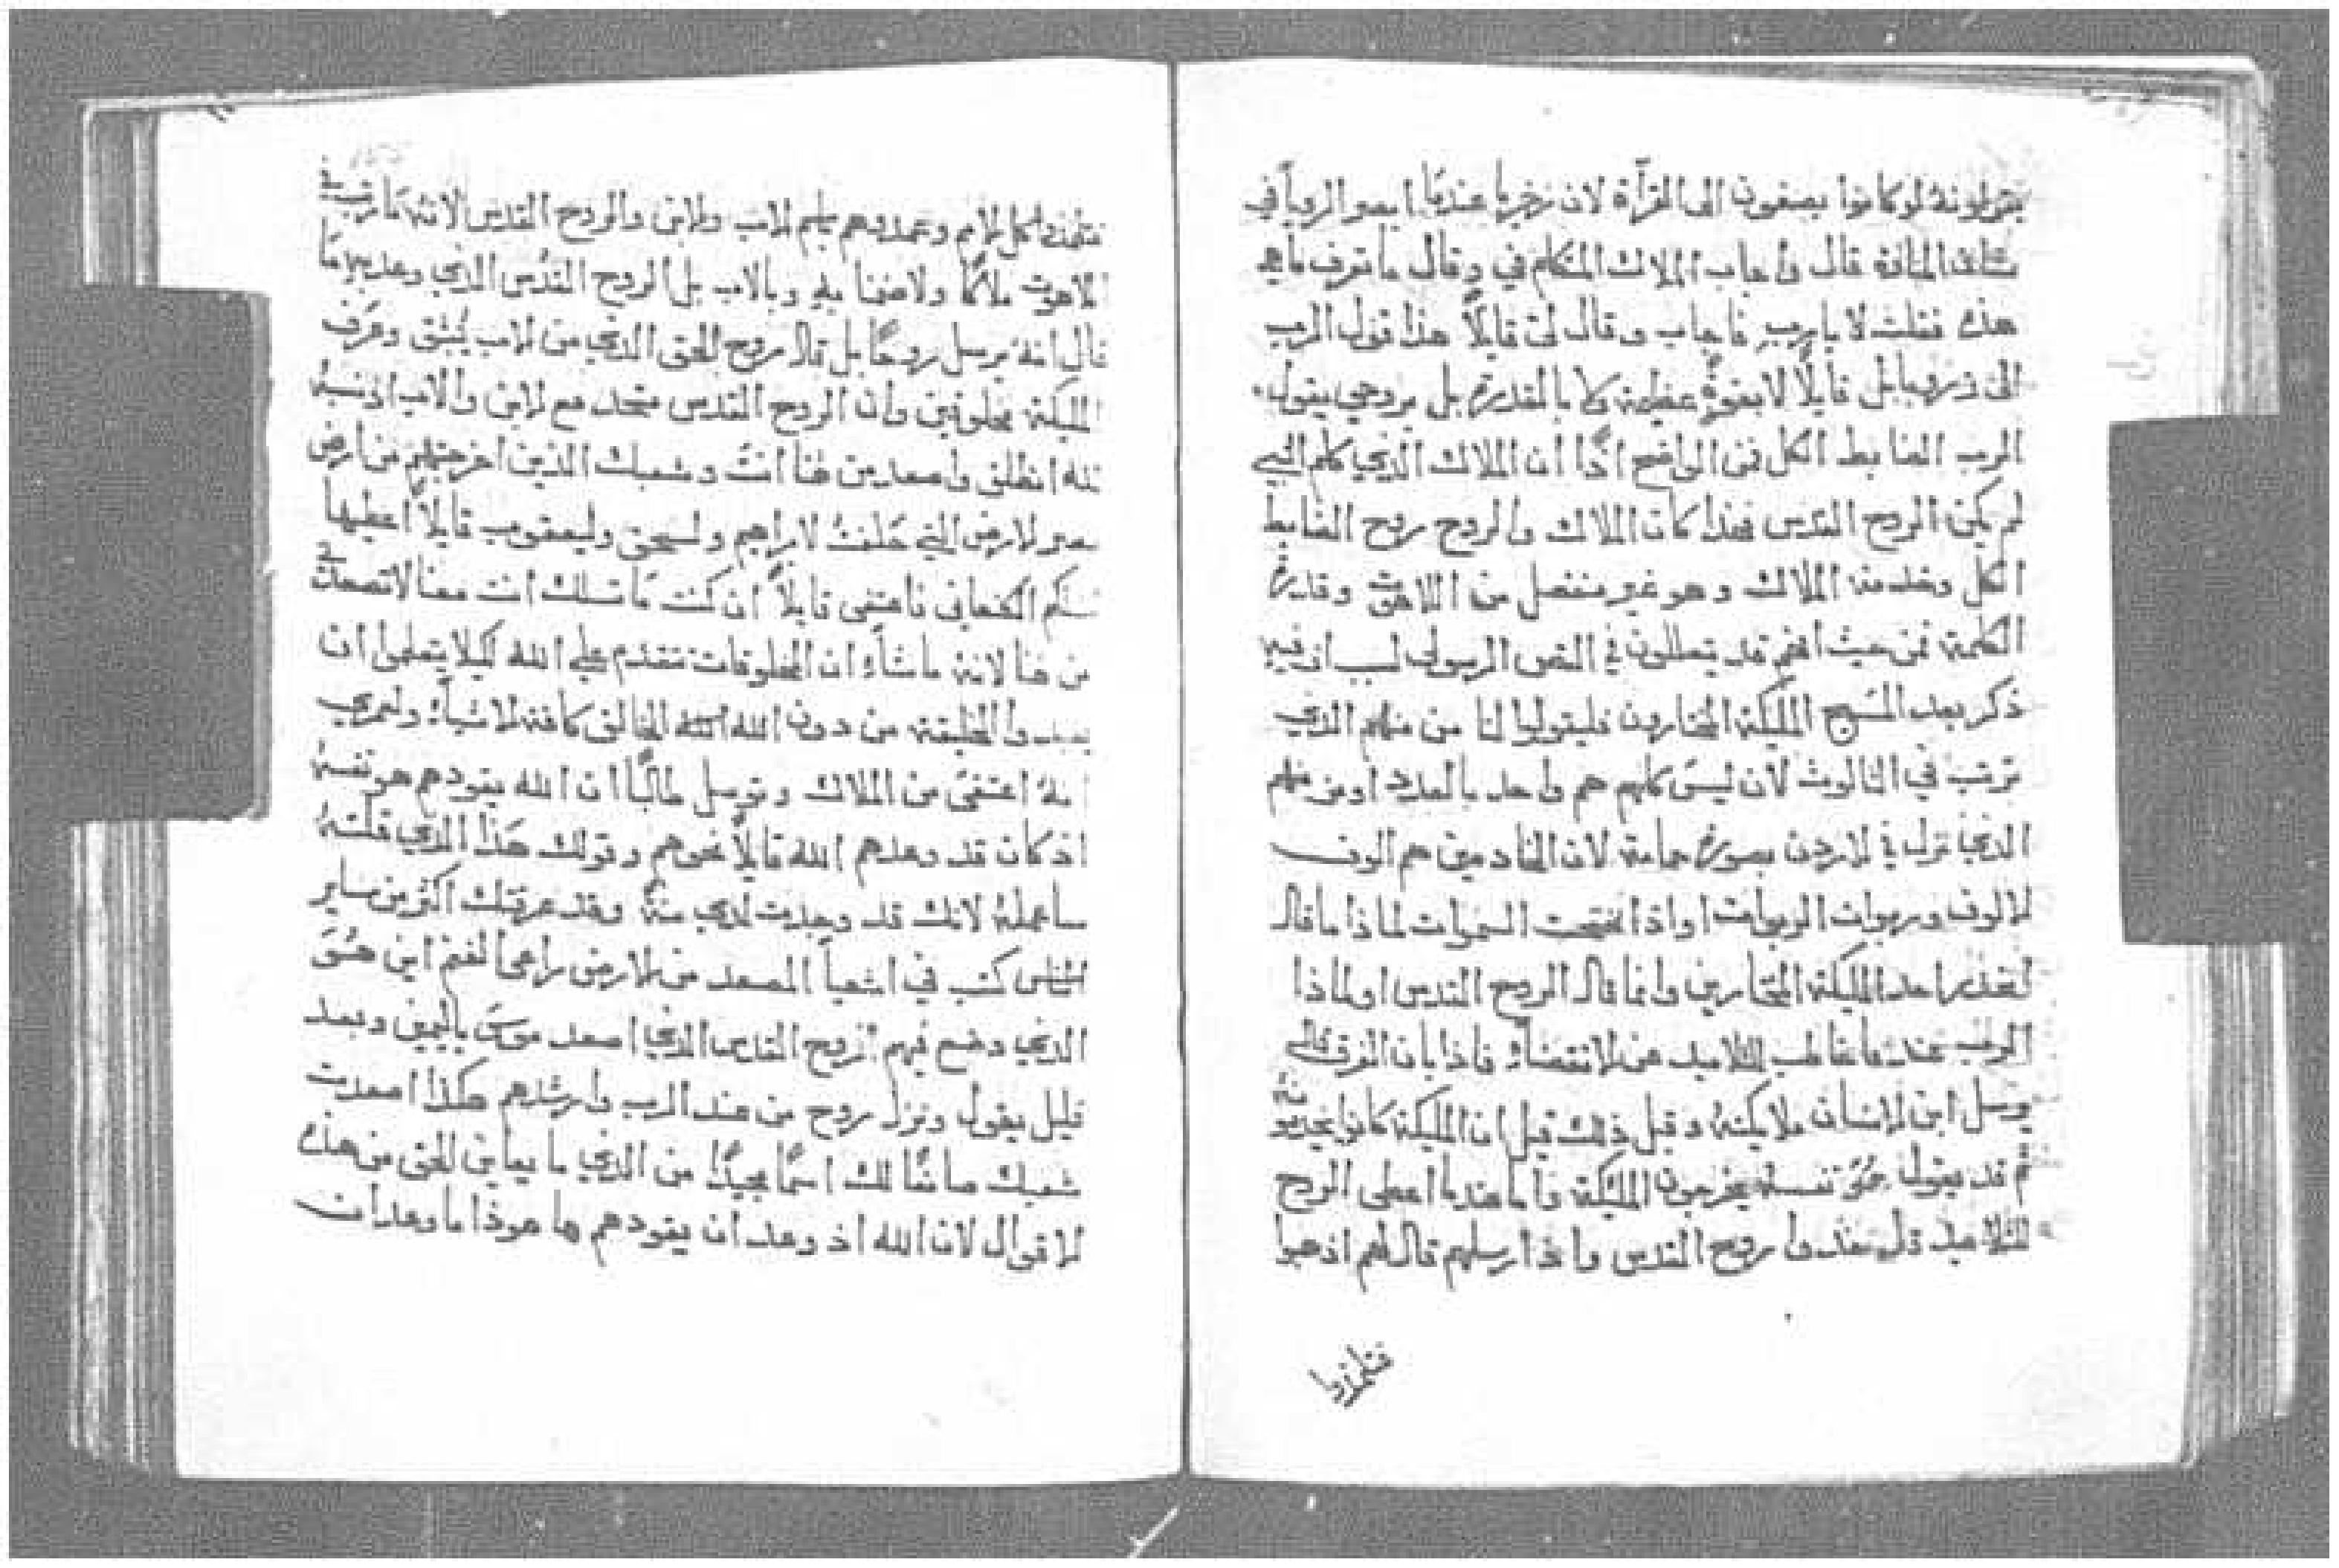 يتولونه لو كانوا يصغون الى القرآة لان زخريا عندما ابصر الرويا في
قال واجاب الملاك المتكلم في وقال ما تعرف ما هي
هذه فقلت لا يا رب فاجاب وقال لي قايلاً هذا قول الرب
الى زربابل قايلاً لا بقوةٍ عظيمة ولا بالقدرة بل بروحي يقول
الرب الضابط الكل فمن الواضح اذًا ان الملاك الذي كلم النبي
لم يكن الروح القدس فهذا كان الملاك والروح روح الضابط
الكل وخدمته الملاك وهو غير منفصل من اللاهوت وقايمة
الكلمة فمن حيث انهم قد يتعللون في النص الرسولي لسبب ان فيه
ذكر بعد المسيح المليكة المختارون فليقولوا لنا من منهم الذي
ترتب في الثالوث لان ليس كلهم هم واحد بالعدد او من منهم
الذي نزل في الاردن بصورة حمامة لان الخادمين هم الوف
الالوف وربوات الربوات او اذا انفتحت السموات لماذا ما قال
انحدر احد المليكة المختارين وانما قال الروح القدس او لماذا
الرب عندما خاطب التلاميد عن الانقضاء فاذا بان الفرق قال
يرسل ابن الانسان ملايكته وقبل ذلك قيل ان المليكة كانوا يخدمونه
ثم قد يقول حتى نفسه يخرجون المليكة واما عندما اعطى الروح
للتلاميد قال خذوا روح القدس واذا رسلهم قال لهم اذهبوا
فتلمذوا
فتلمذوا كل الامم وعمدوهم باسم الاب والابن والروح القدس لانه ما رتب في
اللاهوت ملاكًا ولا ضمنا به وبالاب بل الروح القدس الذي وعدهم ما
قال انه يرسل روحًا بل قال روح الحق الذي من الاب ينبثق وعرف
المليكة مخلوقين وان الروح القدس متحد مع الابن والاب او نسبة
انطلق واصعد من هنا انت وشعبك الذين اخرجتهم من ارض
مصر الارض التي حلفت لابراهيم ولسحق وليعقوب قايلاً اعطيها
الكنعاني فاعتفى قايلاً ان كنت ما تسلك انت معنا لا تصعدني
من هنا لانه ما شاء ان المخلوقات تتقدم على الله ليلا يتعلموا ان
يعبدوا الخليقة من دون الله الخالق كافة الاشياء ولعمري
انه اعتفى من الملاك وتوسل طالبًا ان الله يقودهم هو نفسه
اذ كان قد وعدهم الله قايلاً نحوهم وقولك هذا الذي قلته
ساعمله لانك قد وجدت لدي منة وقد عرفتك اكثر من ساير
الناس كتب في اشعيا المصعد من الارض راعي الغنم اين هو
الذي وضع فيهم الروح القدس الذي اصعد موسى باليمين وبعد
قليل يقول ونزل روح من عند الرب وارشدهم هكذا اصعدت
شعبك صانعًا لك اسمًا مجيدًا من الذي ما يعاين الحق من هذه
الاقوال لان الله اذ وعد ان يقودهم ها هوذا ما وعد ان